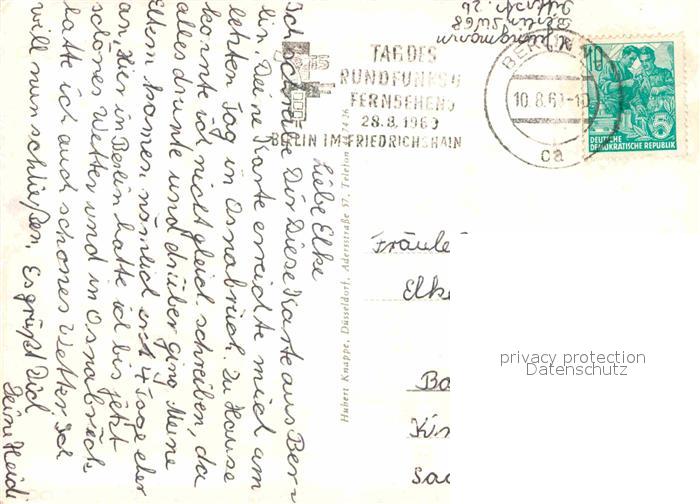 Liebe Elke
Ich schreibe Dir Diese Karte aus Ber=
lin. Deine Karte erreichte mich am
letzten Tag in Osnabrück. Zu Hause
konnte ich nicht gleich schreiben, da
alles drunte und drüber ging. Meine
Eltern kamen nämlich erst 4 Tage eher
an. Hier in Berlin hatte ich bis jetzt
schönes Wetter und in Osnabrück
hatte ich auch schönes Wetter. Ich
will nun schließen. Es grüßt Dich
Deine Heidi
Hubert Knappe, Düsseldorf, Adersstraße 57, Telefon
TAG DES
RUNDFUNKS U
FERNSEHENS
28.8.1960
BERLIN IM FRIEDRICHSHAIN
BERLIN
10.8.60-10
ca
10
5
DEUTSCHE
DEMOKRATISCHE REPUBLIK
Berlin SW68
Fräule
Elke
Ba
Kir
Sac
privacy protection
Datenschutz